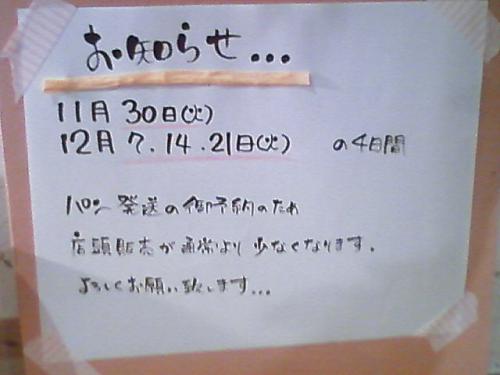 お知らせ...
11月30日(火)
12月7.14.21日(火) の4日間
パン発送の御予約のため
店頭販売が通常より少なくなります。
よろしくお願い致します...